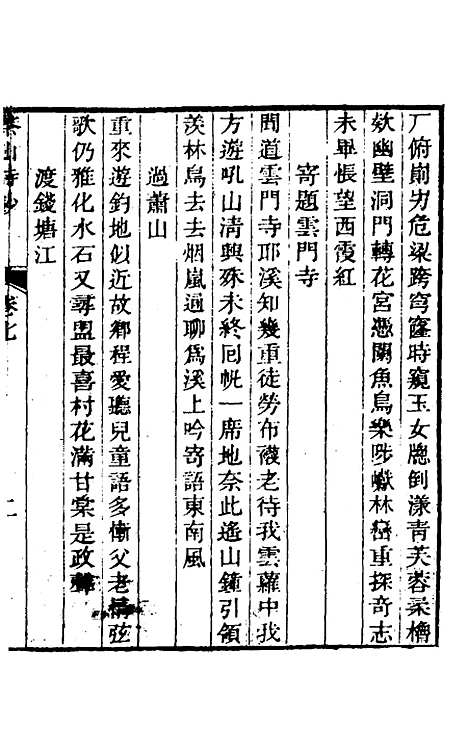 厂俯崩岃危梁跨穹窿時窺玉女牕倒漾靑芙蓉柔櫓
欸幽壁洞門轉花宮憑闌魚鳥樂陟巘林巒重探奇志
未畢悵望西霞紅
寄題雲門寺
聞道雲門寺耶溪知幾重徒勞布襪老待我雲蘿中我
方遊吼山淸興殊未終囘帆一席地奈此遙山鐘引領
羨林鳥去去烟嵐過聊爲溪上吟寄語東南風
過蕭山
重來遊釣地似近故鄕程愛聽兒童語多衝父老情弦
歌仍雅化水石又尋盟最喜村花滿甘棠是政聲
渡錢塘江
卷七